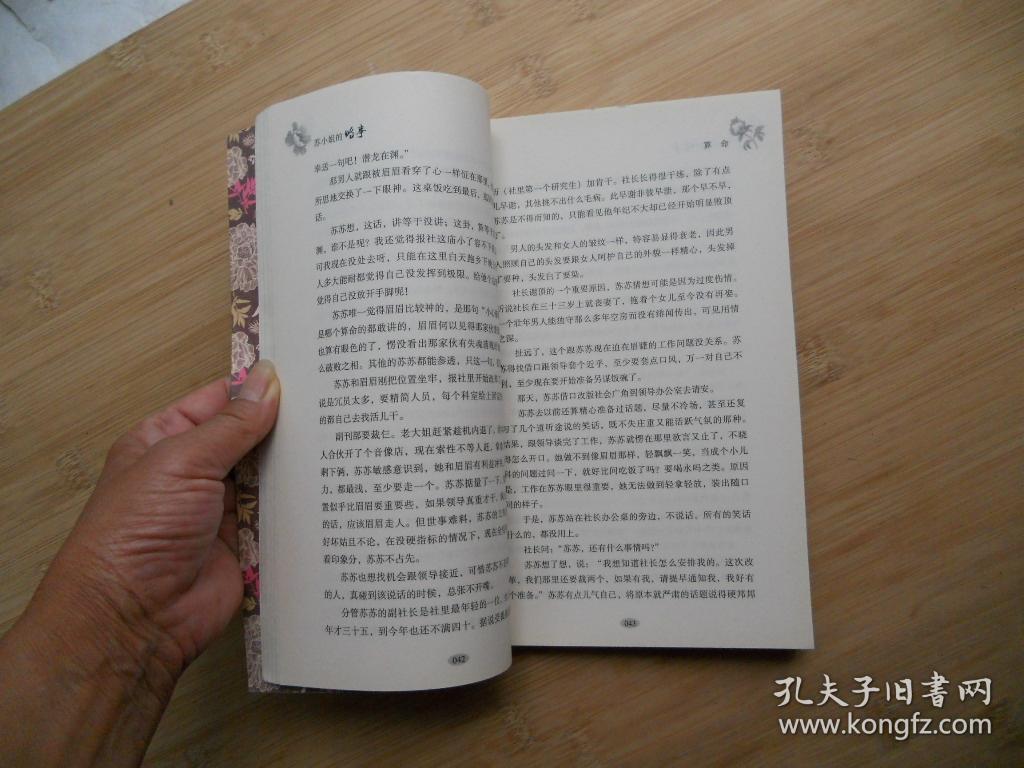 苏小姐的
幸送一句吧！潜龙在渊。”
那男人就跟被眉眉看穿了心一样怔在那里，
所思地交换了一下眼神。这桌饭吃到最后，
话。
苏苏想，这话，讲等于没讲；这卦，算等于
渊，谁不是呢？我还觉得报社这庙小了容不下
可我现在没处去呀，只能在这里白天跑乡下晚
人多大能耐都觉得自己没发挥到极限。给他个
觉得自己没放开手脚呢！
苏苏唯一觉得眉眉比较神的，是那句“小心
是哪个算命的都敢讲的，眉眉何以见得那家伙
也算有眼色的了，愣没看出那家伙有失魂落魄
么破败之相。其他的苏苏都能参透，只这一句，
苏苏和眉眉刚把位置坐牢，报社里开始改
说是冗员太多，要精简人员，每个科室给上面
的都自己去我活儿干。
副刊部要裁仨。老大姐赶紧趁机内退了，
人合伙开了个音像店，现在索性不等人赶，
剩下俩，苏苏敏感意识到，她和眉眉有利益冲
力，都最浅，至少要走一个。苏苏掂量了一下，
置似乎比眉眉要重要些，如果领导真重才干，
的话，应该眉眉走人。但世事难料，苏苏的
好坏姑且不论，在没硬指标的情况下，现在全
着印象分，苏苏不占先。
苏苏也想找机会跟领导接近，可惜苏苏不是
的人，真碰到该说话的时候，总张不开嘴。
分管苏苏的副社长是社里最年轻的一位，
年才三十五，到今年也还不满四十。据说受提
042
算 命
历（社里第一个研究生）加肯干。社长长得很干练，除了有点
儿早谢，其他挑不出什么毛病。此早谢非彼早谢，那个早不早，
苏苏是不得而知的，只能看见他年纪不大却已经开始明显败顶
了。
男人的头发和女人的皱纹一样，特容易显得衰老，因此男
人照顾自己的头发要跟女人呵护自己的外貌一样精心，头发掉
了要种，头发白了要染。
社长谢顶的一个重要原因，苏苏猜想可能是因为过度伤情。
听说社长在三十三岁上就丧妻了，拖着个女儿至今没有再娶。
一个壮年男人能独守那么多年空房而没有绯闻传出，可见用情
之深。
扯远了，这个跟苏苏现在迫在眉睫的工作问题没关系。苏
苏得找借口跟领导套个近乎，至少要套点口风，万一对自己不
利，至少现在要开始准备另谋饭碗了。
那天，苏苏借口改版社会广角到领导办公室去请安。
苏苏去以前还算精心准备过话题，尽量不冷场，甚至还复
习了几个道听途说的笑话，既不失庄重又能活跃气氛的那种。
结果，跟领导谈完了工作，苏苏就愣在那里欲言又止了，不晓
得怎么开口。她做不到像眉眉那样，轻飘飘一笑，当成个小儿
科的问题过问一下，就好比问吃饭了吗？要喝水吗之类。原因
是，工作在苏苏眼里很重要，她无法做到轻拿轻放，装出随口
问的样子。
于是，苏苏站在社长办公桌的旁边，不说话。所有的笑话
什么的，都没用上。
社长问：“苏苏，还有什么事情吗？”
苏苏想了想，说：“我想知道社长怎么安排我的。这次改
革，我们那里还要裁两个，如果有我，请提早通知我，我好有
个准备。”苏苏有点儿气自己，将原本就严肃的话题说得硬邦邦
043
孔夫子旧書网
www.kongfz.com